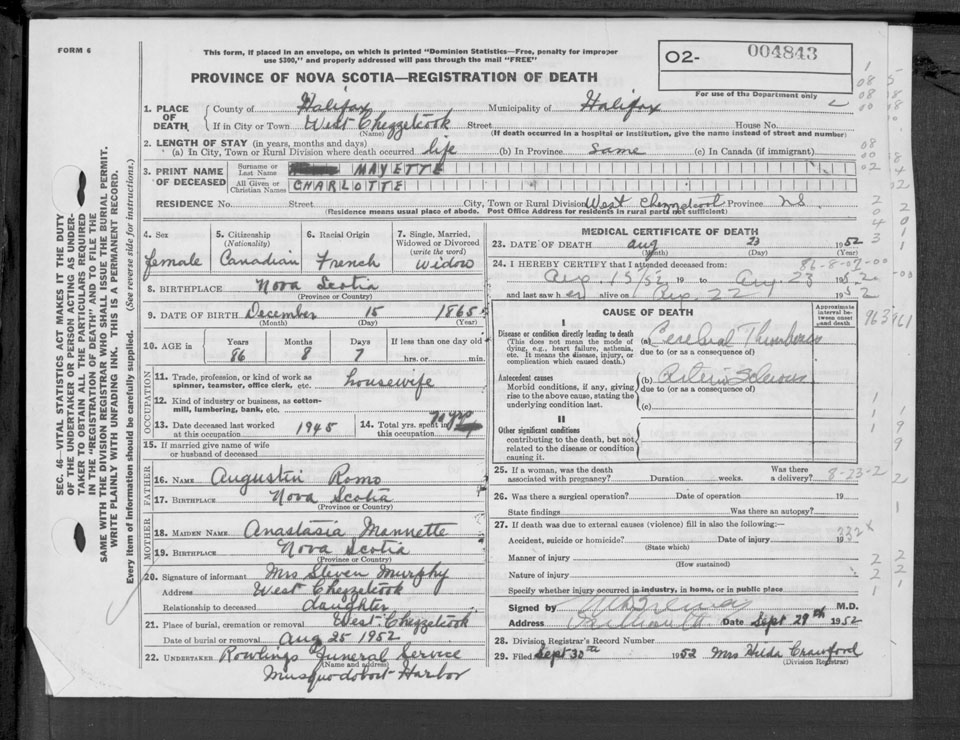 FORM 6
This form, if placed in an envelope, on which is printed "Dominion Statistics—Free, penalty for improper
use $300," and properly addressed will pass through the mail "FREE"
PROVINCE OF NOVA SCOTIA—REGISTRATION OF DEATH
O2- 004843
For use of the Department only
SEC. 46—VITAL STATISTICS ACT MAKES IT THE DUTY
OF THE UNDERTAKER OR PERSON ACTING AS UNDER-
TAKER TO OBTAIN ALL THE PARTICULARS REQUIRED
IN THE "REGISTRATION OF DEATH" AND TO FILE THE
SAME WITH THE DIVISION REGISTRAR WHO SHALL ISSUE THE BURIAL PERMIT.
WRITE PLAINLY WITH UNFADING INK. THIS IS A PERMANENT RECORD.
Every item of Information should be carefully supplied. (See reverse side for instructions.)
1. PLACE OF DEATH
County of Halifax Municipality of Halifax
If in City or Town West Chezzetcook Street House No.
(Name) (If death occurred in a hospital or institution, give the name instead of street and number)
2. LENGTH OF STAY (in years, months and days)
(a) In City, Town or Rural Division where death occurred life (b) In Province same (c) In Canada (if immigrant)
3. PRINT NAME OF DECEASED
Surname or Last Name MAYETTE
All Given or Christian Names CHARLOTTE
RESIDENCE No. Street City, Town or Rural Division West Chezzetcook Province NS
(Residence means usual place of abode. Post Office Address for residents in rural parts not sufficient)
4. Sex female
5. Citizenship (Nationality) Canadian
6. Racial Origin French
7. Single, Married, Widowed or Divorced (write the word) Widow
8. BIRTHPLACE Nova Scotia
(Province or Country)
9. DATE OF BIRTH December 15 1865
(Month) (Day) (Year)
10. AGE in Years 86 Months 8 Days 7 If less than one day old hrs. or min.
OCCUPATION
11. Trade, profession, or kind of work as spinner, teamster, office clerk, etc. housewife
12. Kind of industry or business, as cotton-mill, lumbering, bank, etc.
13. Date deceased last worked at this occupation 1945
14. Total yrs. spent in this occupation
15. If married give name of wife or husband of deceased
FATHER
16. NAME Augustin Romo
17. BIRTHPLACE Nova Scotia
(Province or Country)
MOTHER
18. MAIDEN NAME Anastasia Mannette
19. BIRTHPLACE Nova Scotia
(Province or Country)
20. Signature of informant Mrs Steven Murphy
Address West Chezzetcook
Relationship to deceased daughter
21. Place of burial, cremation or removal West Chezzetcook
Date of burial or removal Aug 25 1952
22. UNDERTAKER Rowlings Funeral Service
(Name and address)
Musquodoboit Harbor
MEDICAL CERTIFICATE OF DEATH
23. DATE OF DEATH Aug 23 1952
(Month) (Day)
24. I HEREBY CERTIFY that I attended deceased from: 86-8-07-00
Aug. 15/52 19 to Aug. 23 1952
and last saw her alive on Aug. 22 1952
CAUSE OF DEATH
Approximate interval between onset and death
I
Disease or condition directly leading to death
(This does not mean the mode of dying, e.g., heart failure, asthenia, etc. It means the disease, injury, or complication which caused death.)
(a) Cerebral Thrombosis
due to (or as a consequence of)
Antecedent causes
Morbid conditions, if any, giving rise to the above cause, stating the underlying condition last.
(b) Arterio Sclerosis
due to (or as a consequence of)
(c)
II
Other significant conditions
contributing to the death, but not related to the disease or condition causing it.
25. If a woman, was the death associated with pregnancy? Duration weeks. Was there a delivery? 8-23-2
26. Was there a surgical operation? Date of operation 19
State findings Was there an autopsy?
27. If death was due to external causes (violence) fill in also the following:—
332 x
Accident, suicide or homicide? Date of injury 19
(State which)
Manner of injury
(How sustained)
Nature of injury
Specify whether injury occurred in industry, in home, or in public place
Signed by M.D.
Address Date Sept 29th 1952
28. Division Registrar's Record Number
29. Filed Sept 30th 1952 Mrs Hilda Crawford
(Division Registrar)